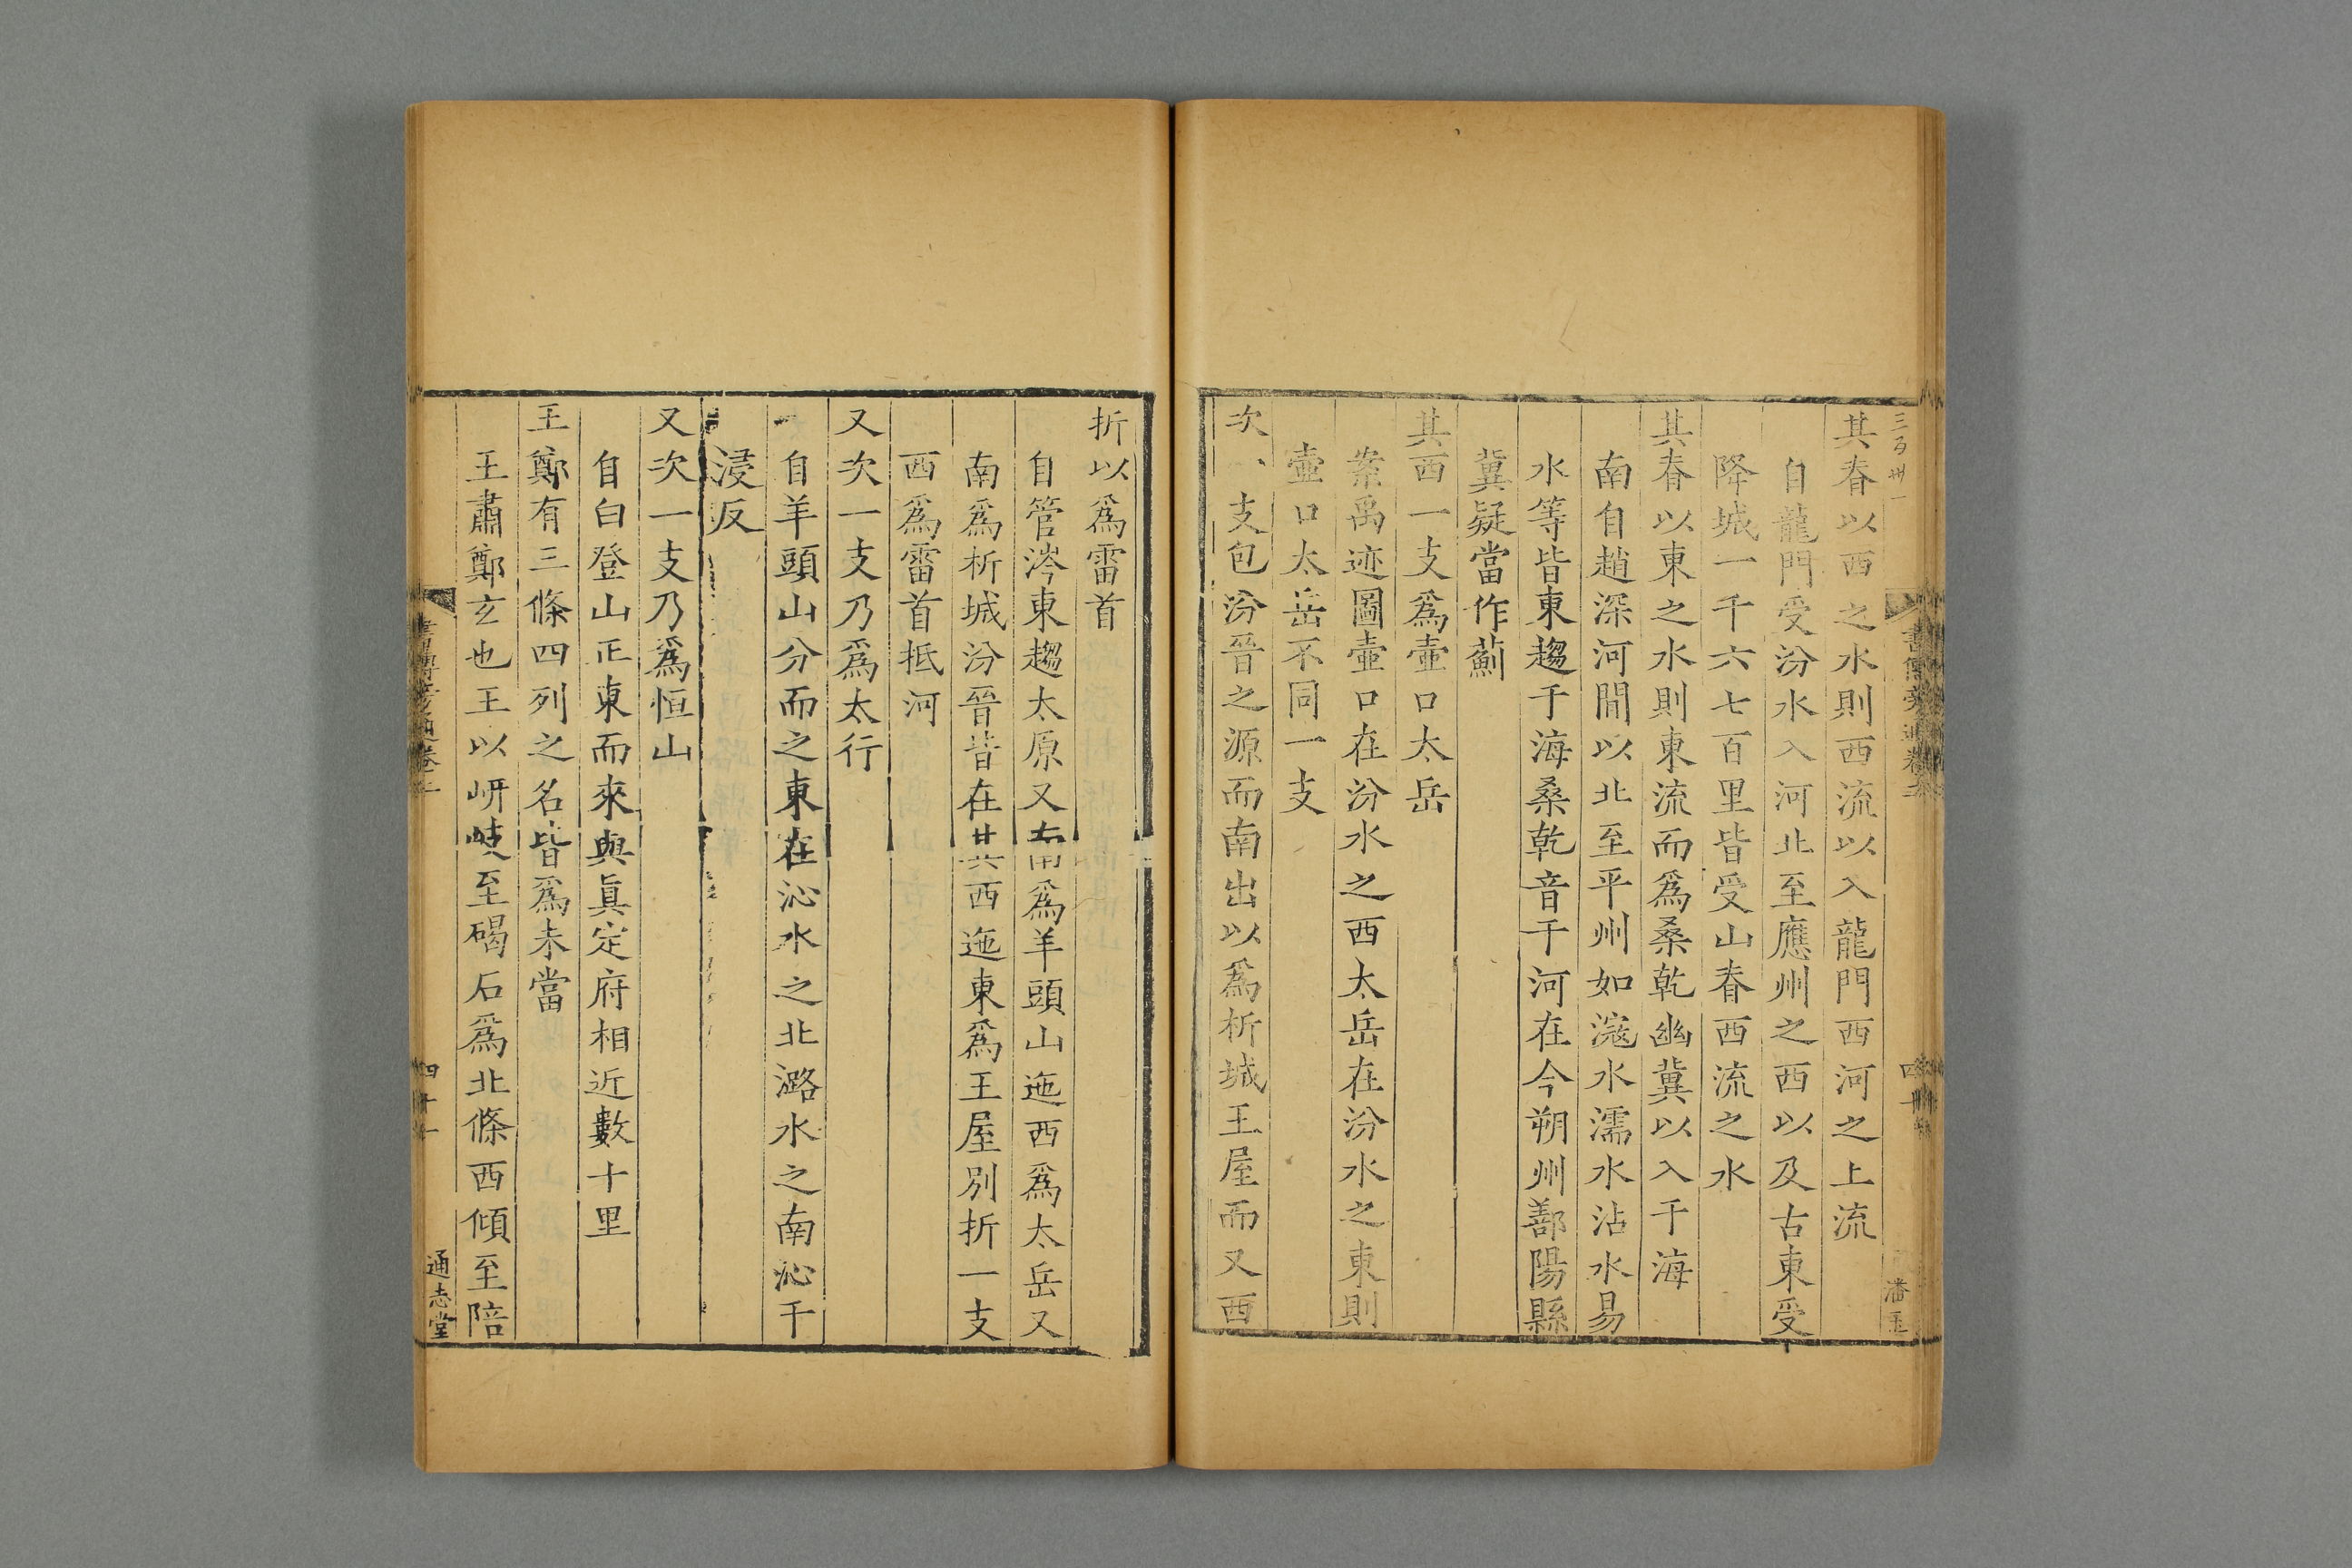 三百卅一
書傳旁通卷
四十
潘玉
其脊以西之水則西流以入龍門西河之上流
自龍門受汾水入河北至應州之西以及古東受
降城一千六七百里皆受山脊西流之水
其脊以東之水則東流而爲桑乾幽冀以入于海
南自趙深河間以北至平州如滱水濡水沾水易
水等皆東趨于海桑乾音干河在今朔州鄯陽縣
冀疑當作薊
其西一支爲壷口太岳
案禹迹圖壷口在汾水之西太岳在汾水之東則
壷口太岳不同一支
次一支包汾晉之源而南出以爲析城王屋而又西
折以爲雷首
自管涔東趨太原又南爲羊頭山迤西爲太岳又
南爲析城汾晉皆在其西迤東爲王屋別折一支
西爲雷首抵河
又次一支乃爲太行
自羊頭山分而之東在沁水之北潞水之南沁千
浸反
又次一支乃爲恒山
自白登山正東而來與眞定府相近數十里
王鄭有三條四列之名皆爲未當
王肅鄭玄也王以岍岐至碣石爲北條西傾至陪
書傳旁通卷二
四十一
通志堂